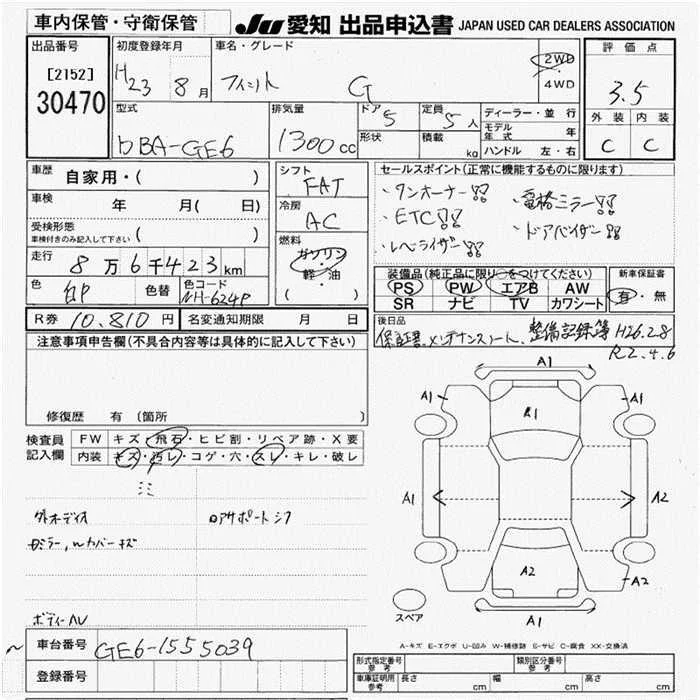 車内保管・守衛保管
JU 愛知 出品申込書 JAPAN USED CAR DEALERS ASSOCIATION
出品番号 初度登録年月 車名・グレード 評価点
[2152]
30470
H23 8月 フィット G 2WD
4WD
3.5
型式 排気量 ドア 5 定員 5人 ディーラー・並行 外装 内装
DBA-GE6 1300cc 形状 積載 kg モデル年式 年
ハンドル 左・右 C C
車歴 自家用・( ) シフト FAT セールスポイント(正常に機能するものに限ります)
車検 年 月( 日) 冷房 AC ・ワンオーナー!! ・電格ミラー!!
受検形態 ・ETC!! ・ドアバイザー!!
車検付きのみ記入して下さい( ) 燃料 ガソリン ・レベライザー!!
走行 8万6千423km 軽・油 装備品(純正品に限り○をつけてください) 新車保証書
( ) PS PW エアB AW 有・無
色 色替 色コード NH-624P SR ナビ TV カワシート
R券 10,810円 名変通知期限 月 日 後日品
保証書、メンテナンスノート、整備記録簿 H26.2.8
R2.4.6
注意事項申告欄(不具合内容等は具体的に記入して下さい)
修復歴 有 (箇所 )
検査員 FW キズ・飛石・ヒビ割・リペア跡・X要
記入欄 内装 キズ・汚レ・コゲ・穴・スレ・キレ・破レ
外オーディオ ロアサポートシワ
ボディーAU
A1
A1 A1
R1
A1 A2
A2 A2
A1
スペア
A-キズ E-エクボ U-凹み W-補修跡 S-サビ C-腐食 XX-交換済
車台番号 GE6-1555039
登録番号
形式指定番号 参考 類別区分番号 参考
車庫証明用 参考 長さ cm 幅 cm 高さ cm